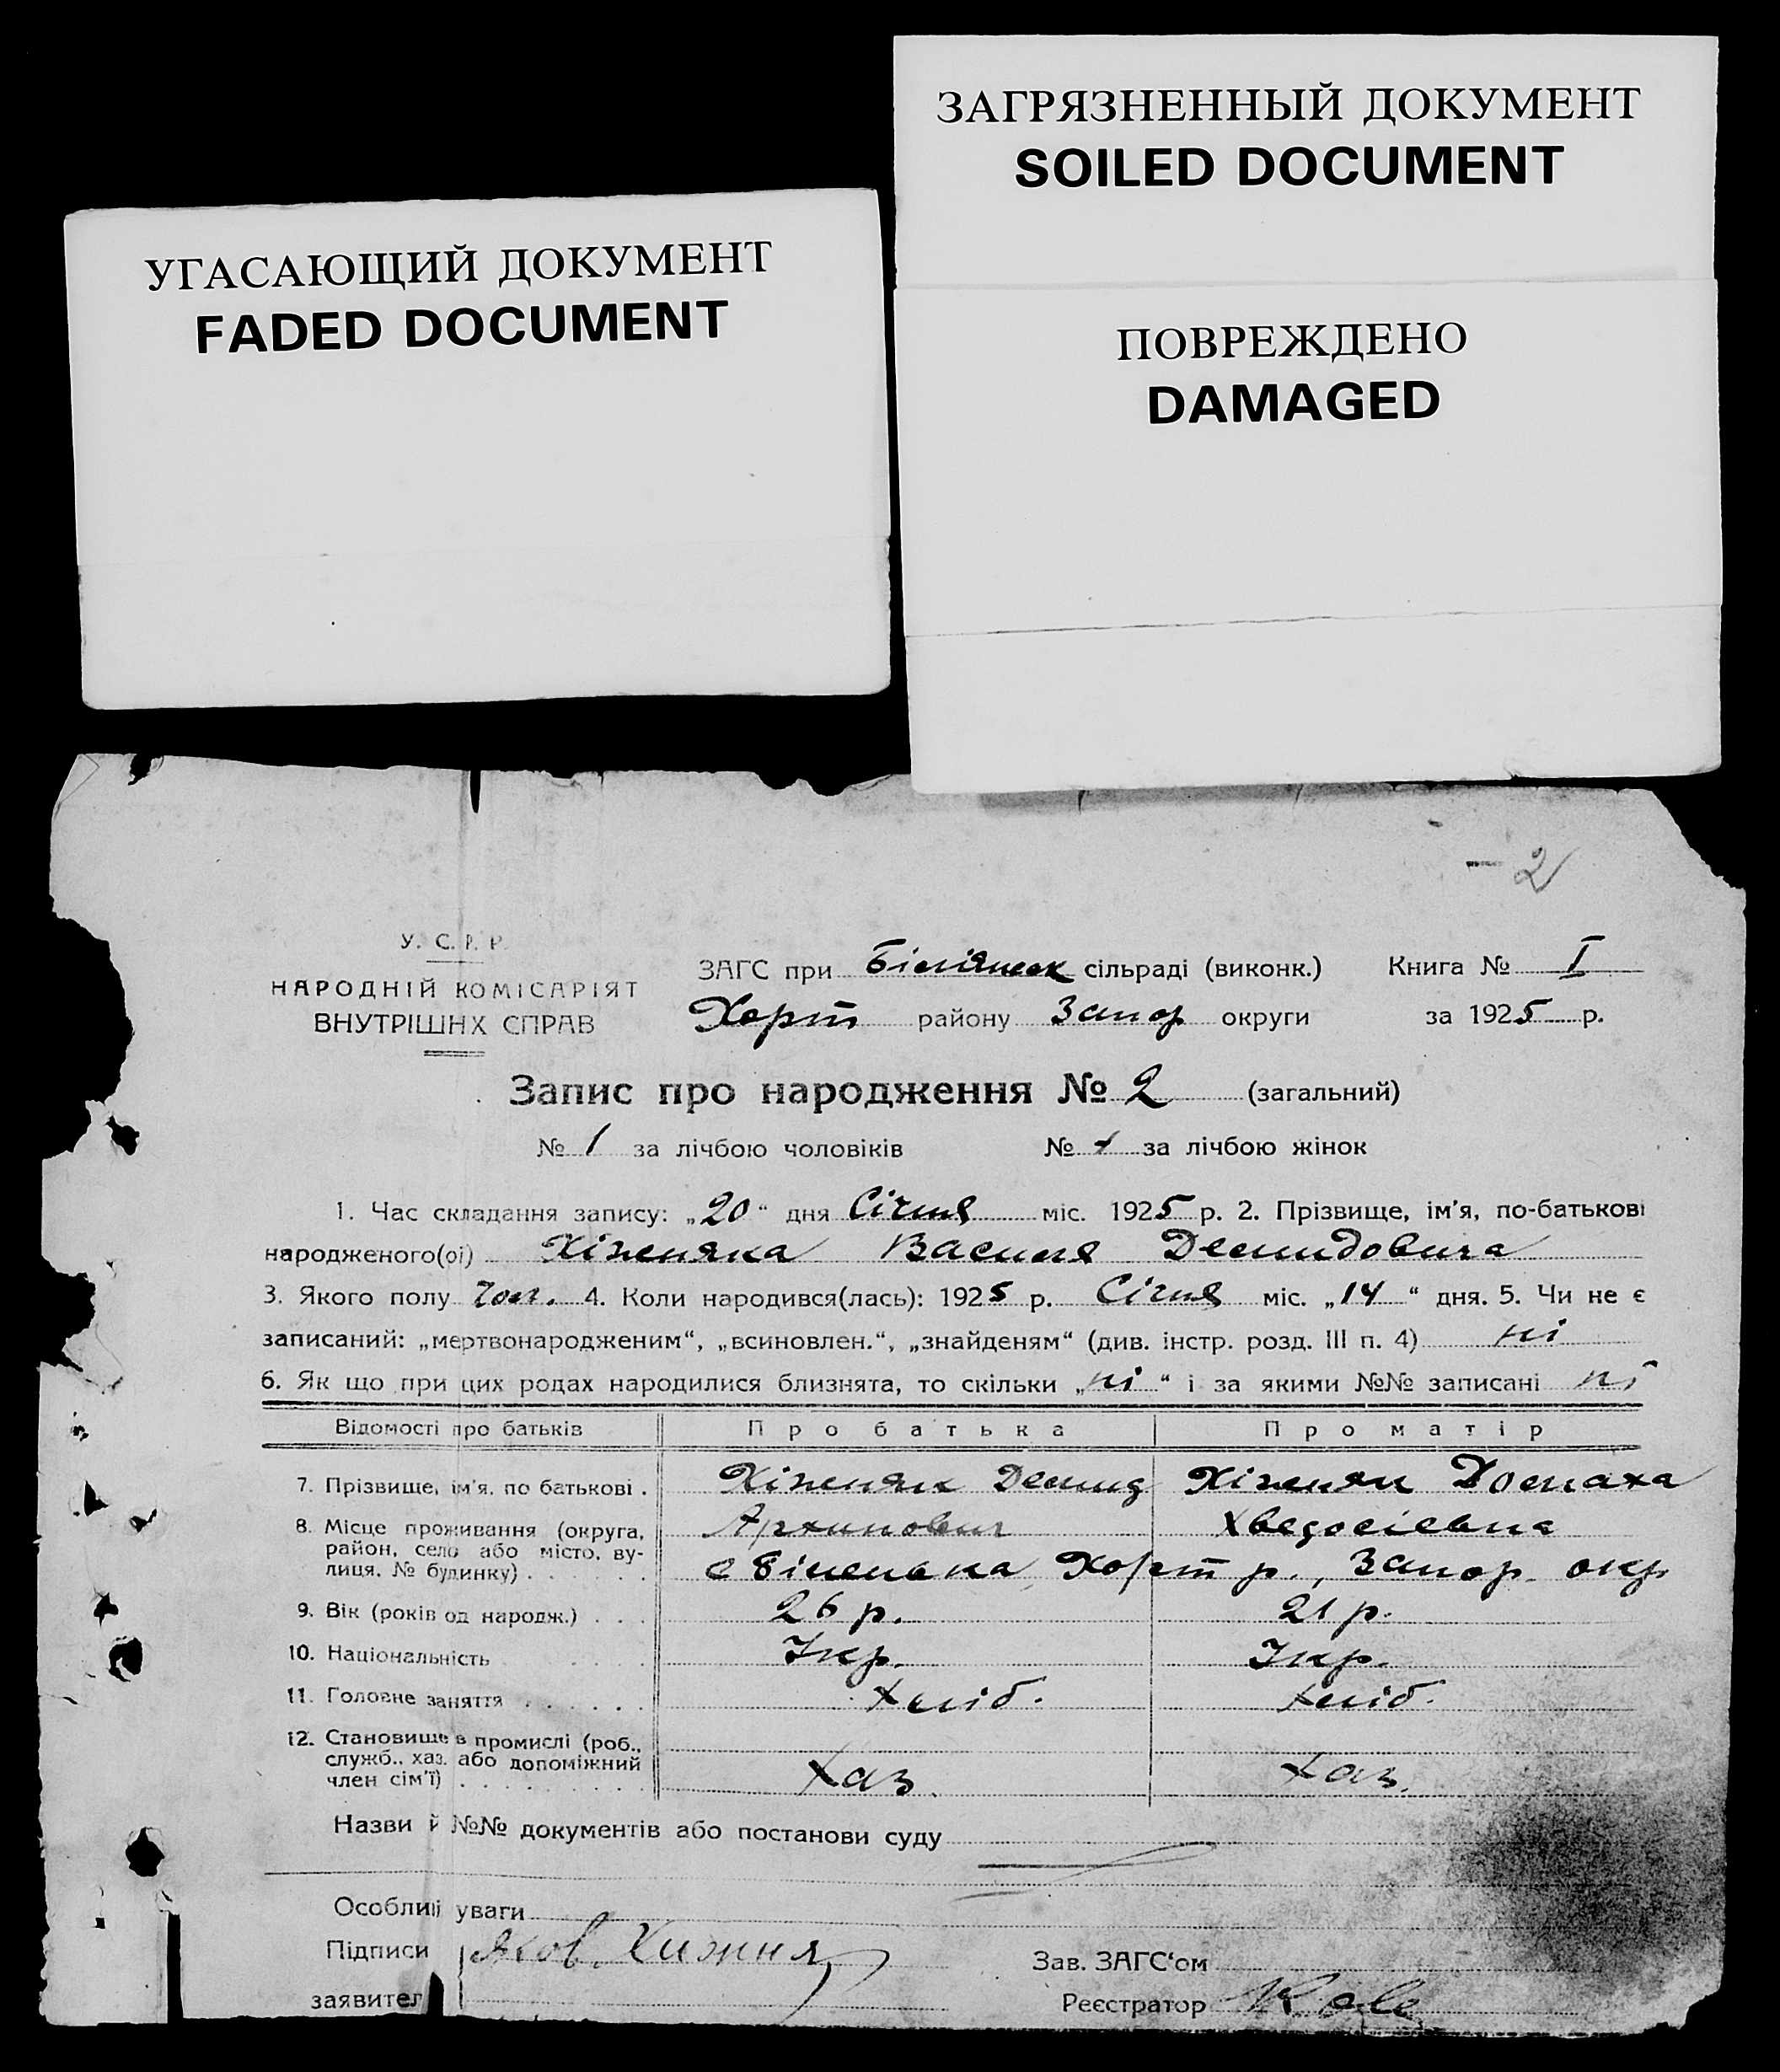 ЗАГРЯЗНЕННЫЙ ДОКУМЕНТ
SOILED DOCUMENT
УГАСАЮЩИЙ ДОКУМЕНТ
FADED DOCUMENT
ПОВРЕЖДЕНО
DAMAGED
2
У. С. Р. Р.
НАРОДНІЙ КОМІСАРІЯТ
ВНУТРІШНХ СПРАВ
ЗАГС при сільраді (виконк.) Книга № I
Хорт району Запор округи за 1925 р.
Запис про народження № 2 (загальний)
№ 1 за лічбою чоловіків № за лічбою жінок
1. Час складання запису: „20“ дня Січня міс. 1925 р. 2. Прізвище, ім'я, по-батькові
народженого(ої) Хіжняка Василя Демидовича
3. Якого полу чол. 4. Коли народився(лась): 1925 р. Січня міс. „14“ дня. 5. Чи не є
записаний: „мертвонародженим“, „всиновлен.“, „знайденям“ (див. інстр. розд. III п. 4) ні
6. Як що при цих родах народилися близнята, то скільки „ні“ і за якими №№ записані ні
Відомості про батьків Про батька Про матір
7. Прізвище, ім'я, по батькові . Хіжняк Демид Хіжняк Домаха
8. Місце проживання (округа, Архипович Хведосіевна
район, село або місто, ву-
лиця, № будинку) . . . . . . с Біленька, Хорт р., Запор. окр
9. Вік (років од народж.) . . . 26 р. 21 р.
10. Національність Укр. Укр.
11. Головне заняття . . . . . . хліб. хліб.
12. Становище в промислі (роб.,
служб., хаз. або допоміжний
член сім'ї) . . . . . . . . хаз. хаз.
Назви й №№ документів або постанови суду
Особливі уваги
Підписи Яков. Хижня Зав. ЗАГС'ом
заявител Реєстратор